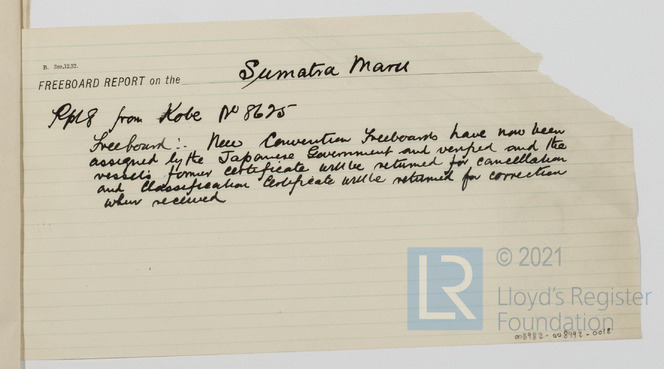 B. 2m,12,32.
FREEBOARD REPORT on the Sumatra Maru
Rpt 8 from Kobe No 8625
Freeboard:- New Convention Freeboards have now been
assigned by the Japanese Government and verified and the
vessel's former certificate will be returned for cancellation
and Classification Certificate will be returned for correction
when received
LR
© 2021
Lloyd's Register
Foundation
008982-008992-0018